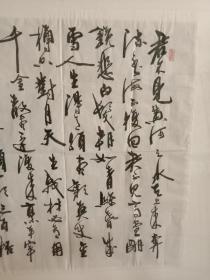 君不見黃河之水天上來奔
流到海不復回君不見高堂明
鏡悲白髮朝如青絲暮成
雪人生得意須盡歡莫使金
樽空對月天生我材必有用
千金散盡還復來烹羊宰